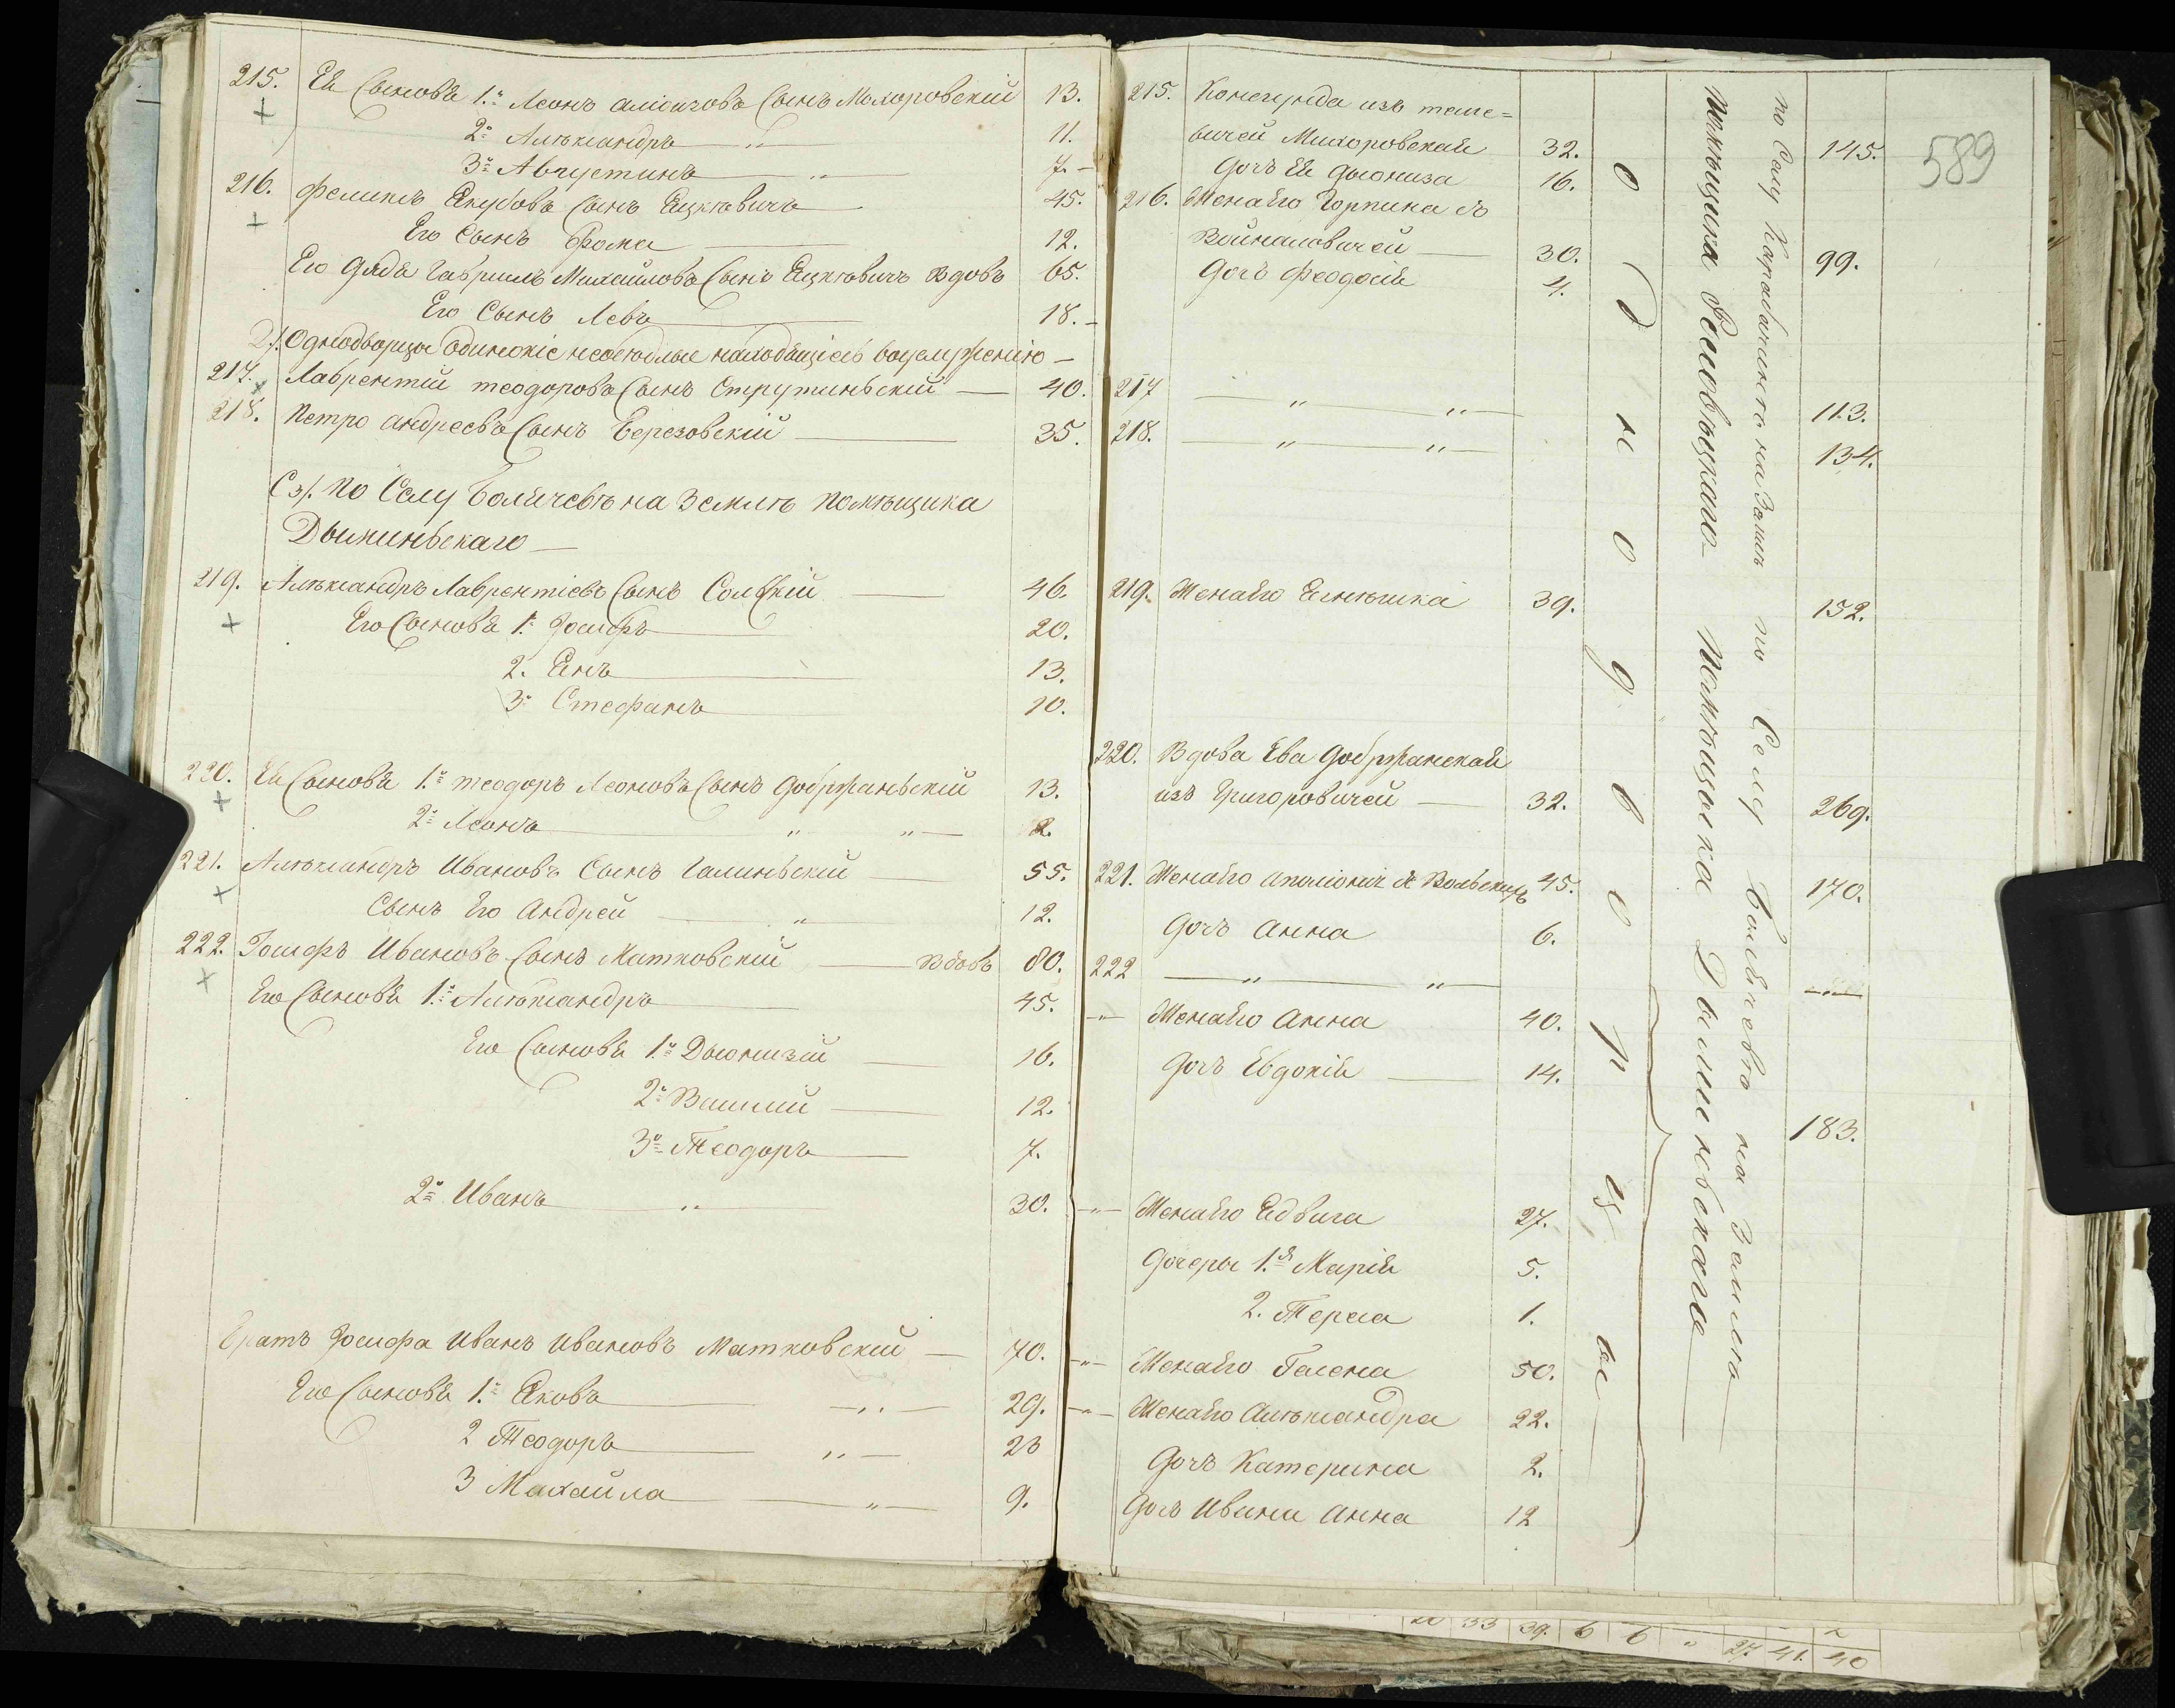 215. Ея Сыновя 1.й Леонъ Сынъ Мохоровскій 13.
2й Александръ 〃 11.
3й Августинъ 〃 7.
216. Феликсъ Якубовъ Сынъ Яцкювичъ 45.
Его Сынъ Фома 12.
Его Дядя Гавриилъ Михайловъ Сынъ Яцкювичъ вдовъ 65.
Его Сынъ Левъ 18.
Однодворцы одинокіе неоседлые находящіеся
217. Лаврентій теодоровъ Сынъ Струтиньскій 40.
218. Петро андреевъ Сынъ Березовскій 35.
Сз/. По Селу Болячевъ на Землѣ помѣщика
Дылиньскаго
219. Александръ Лаврентіевъ Сынъ 46.
Его Сыновя 1. Іосифъ 20.
2. Янъ 13.
3. Стефанъ 10.
220. Ея Сыновя 1.й теодоръ Леоновъ Сынъ Добржаньскій 13.
2й Леонъ 〃 〃 2.
221. Александръ Ивановъ Сынъ Галиньскій 55.
Сынъ Его Андрей 〃 12.
222. Іосифъ Ивановъ Сынъ Матковскій вдовъ 80.
Его Сыновя 1.й Александръ 45.
Его Сыновя 1й Дыонизій 16.
2й Василий 12.
3й Теодоръ 7.
2й Иванъ 〃 30.
Братъ Іосифа Иванъ Ивановъ Матковскій 70.
Его Сыновя 1. Яковъ 〃 29.
2 Теодоръ 〃 23
3 Михайла 〃 9.
215. Конегунда изъ
Мохоровская 32. 145.
Дочъ Ея Дыониза 16.
216. Жена Его Горпина съ
Войналовичей 30. 99.
Дочъ Феодосія 4.
217 〃 〃 113.
218. 〃 〃 134.
219. Жена Его Агнѣшка 39. 152.
220. Вдова Ева Добржанская
изъ Григоровичей 32. 269.
221. Жена Его Аполіонія 45. 170.
Дочъ Анна 6.
222 〃 〃 〃
〃 Жена Его Анна 40.
Дочъ Евдокія 14.
183.
〃 Жена Его Ядвига 27.
Дочеры 1.я Марія 5.
2. Тереса 1.
〃 Жена Его Гелена 50.
〃 Жена Его Александра 22.
Дочъ Катерина 2.
Дочъ Ивана Анна 12
О д н о д в о р ц ы
по Селу на Землѣ
помѣщика
по Селу Болячевъ на Землѣ
Помѣщика Дылиньскаго
589
33 39. 6 6 〃 27. 41. 40